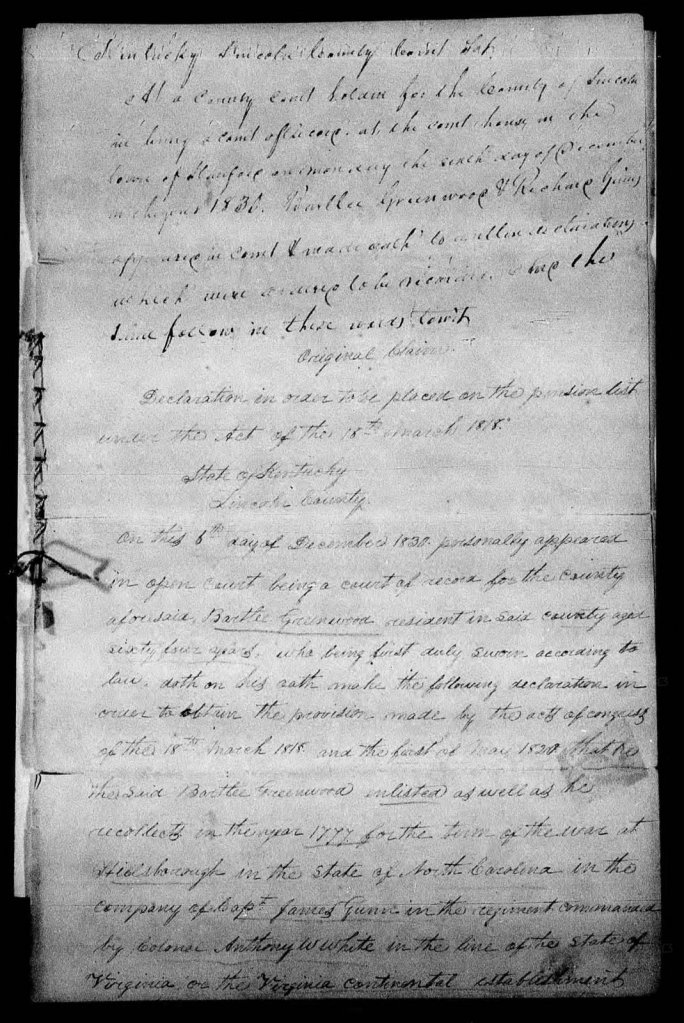 Kentucky Lincoln County Court Sct.
At a County Court holden for the County of Lincoln
in being a court of record, at the court house in the
town of Stanford on monday the sixth day of December
in the year 1830. Bartlee Greenwood & Richard Gaines
appeared in court & made oath to written declarations
which were ordered to be recorded. And the
same follow in these words towit
Original Claim
Declaration in order to be placed on the pension list
under the Act of the 18th March 1818.
State of Kentucky
Lincoln County
On this 6th day of December 1830 personally appeared
in open court being a court of record for the County
aforesaid, Bartlee Greenwood resident in said county aged
sixty four years, who being first duly sworn according to
law, doth on his oath make the following declaration in
order to obtain the provision made by the acts of congress
of the 18th March 1818 and the first of May 1820 that he
the said Bartlee Greenwood enlisted as well as he
recollects in the year 1777 for the term of the war at
Hielsborough in the state of North Carolina in the
company of Capt. James Gunn in the regiment commanded
by Colonal Anthony W White in the line of the State of
Virginia, or the Virginia continental establishment